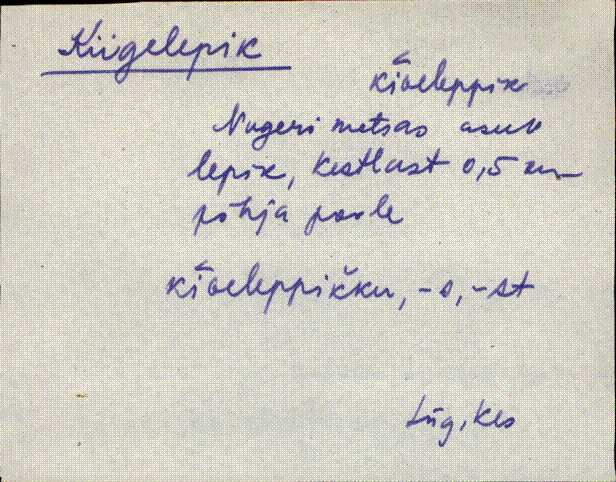 Kiigelepik
kíɢeleppik
Nugeri metsas asuv
lepik, Kestlast 0,5 km
põhja poole
kíɢeleppičku, -s, -st
Lüg, Kes